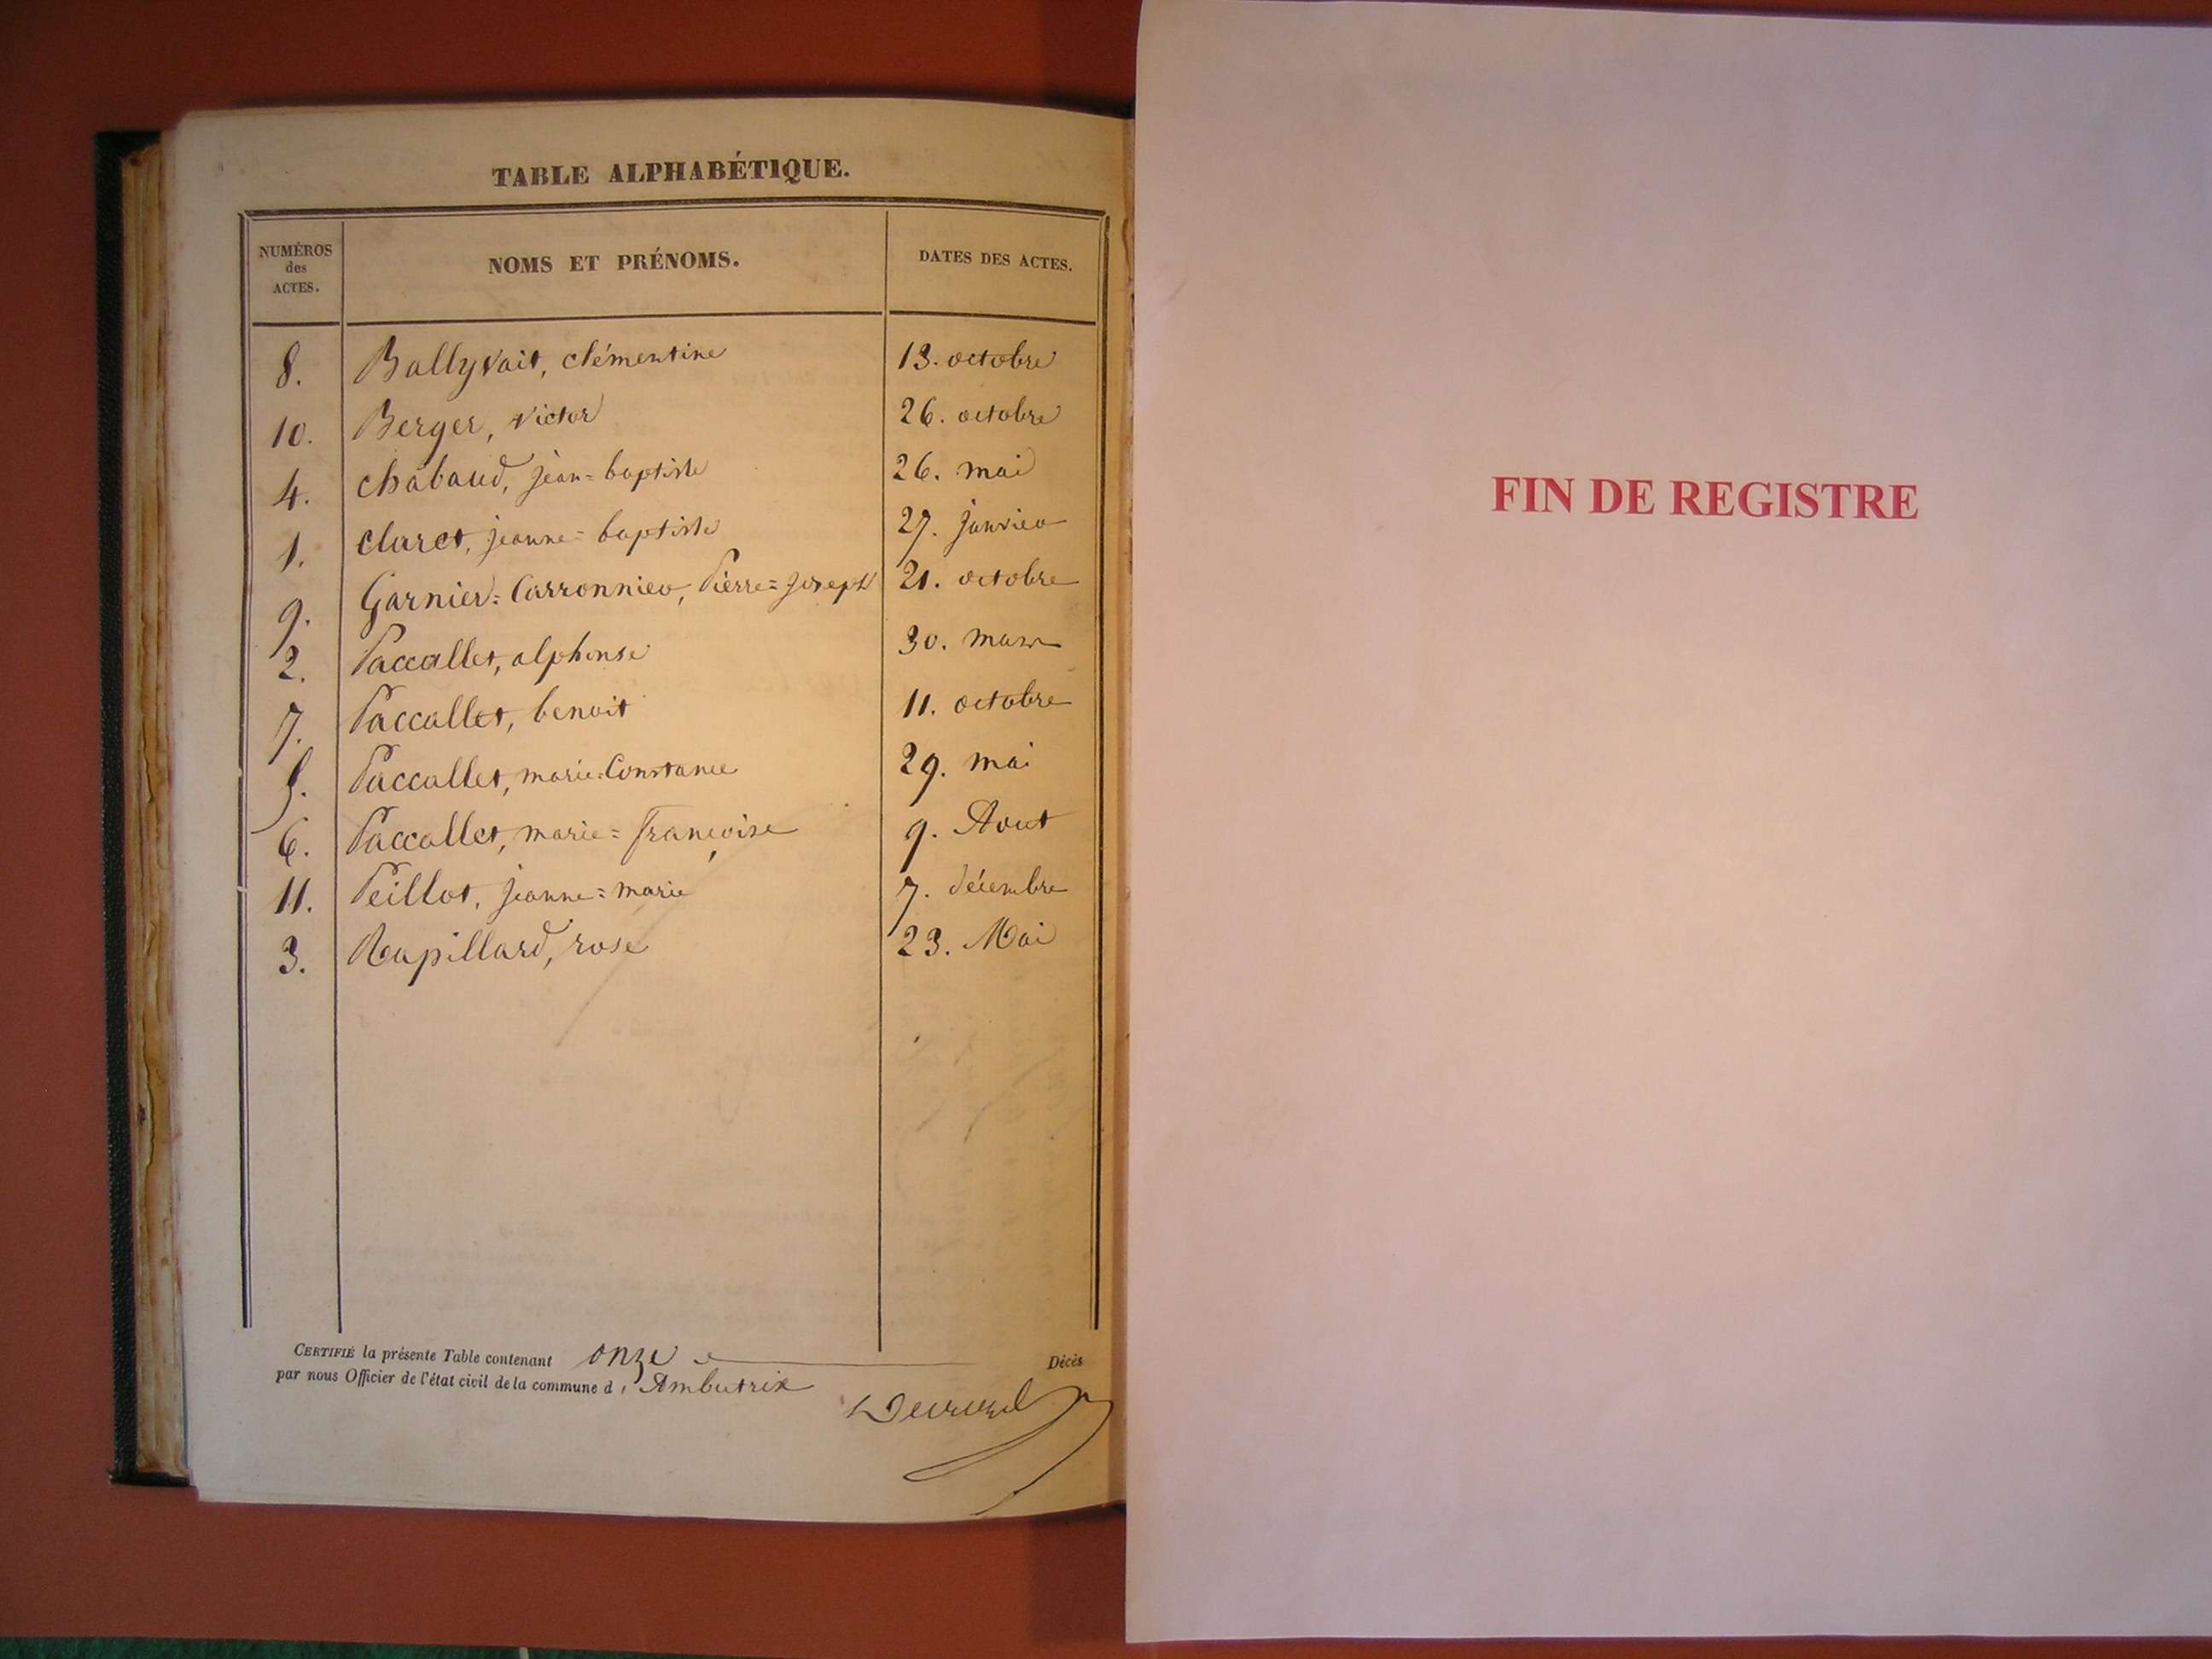 TABLE ALPHABÉTIQUE.
NUMÉROS des ACTES. NOMS ET PRÉNOMS. DATES DES ACTES.
8. Ballyvait, clémentine 13. octobre
10. Berger, victor 26. octobre
4. chabaud, jean=baptiste 26. mai
1. claret, jeanne=baptiste 27. janvier
9. Garnier=Carronnier, Pierre=Joseph 21. octobre
2. Paccallet, alphonse 30. mars
7. Paccallet, benoit 11. octobre
5. Paccallet, marie=Constance 29. mai
6. Paccallet, marie=françoise 9. Aout
11. Peillot, jeanne=marie 7. décembre
3. Rapillard, rose 23. Mai
CERTIFIÉ la présente Table contenant onze Décès
par nous Officier de l'état civil de la commune d'Ambutrix
FIN DE REGISTRE